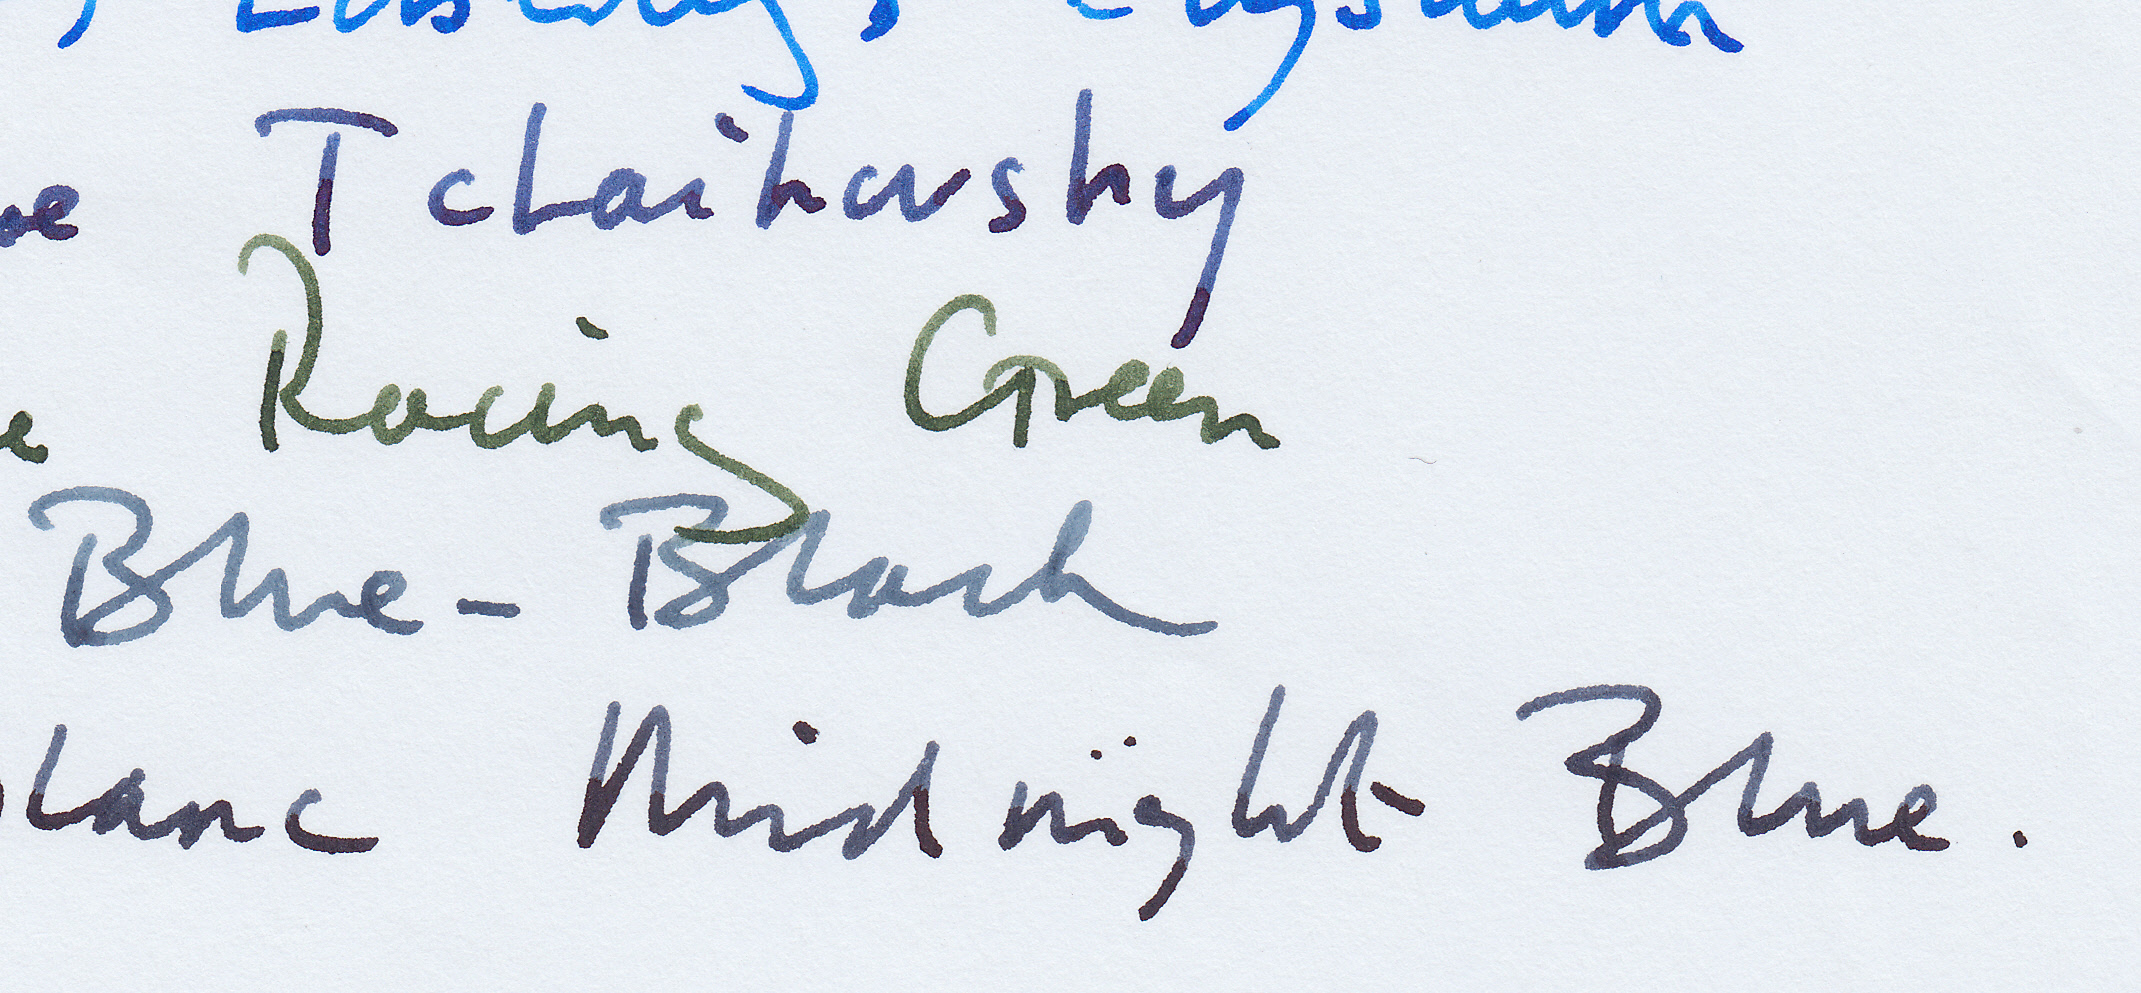 Tchaikovsky
Racing Green
Blue-Black
lanc Midnight Blue.